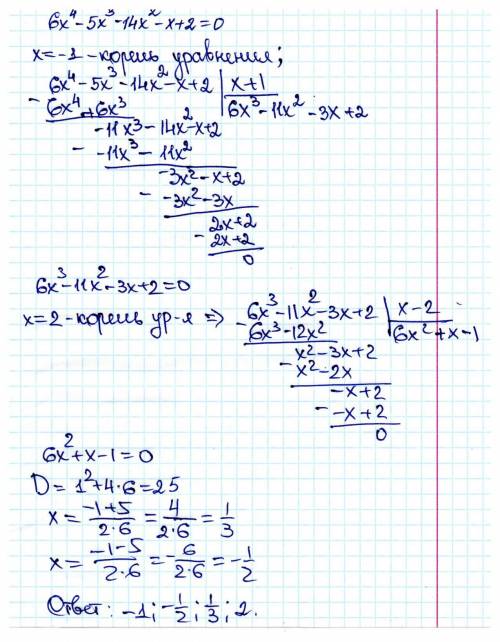 6x⁴-5x³-14x²-x+2=0
x=-1 - корень уравнения;
6x⁴-5x³-14x²-x+2 | x+1
- 6x⁴+6x³ | 6x³-11x²-3x+2
-11x³-14x²-x+2
- -11x³-11x²
-3x²-x+2
- -3x²-3x
2x+2
- 2x+2
0
6x³-11x²-3x+2=0
x=2-корень ур-я => 6x³-11x²-3x+2 | x-2
- 6x³-12x² | 6x²+x-1
x²-3x+2
- x²-2x
-x+2
- -x+2
0
6x²+x-1=0
D=1²+4·6=25
x= (-1+5)/(2·6) = 4/(2·6) = 1/3
x= (-1-5)/(2·6) = -6/(2·6) = -1/2
Ответ: -1; -1/2; 1/3; 2.